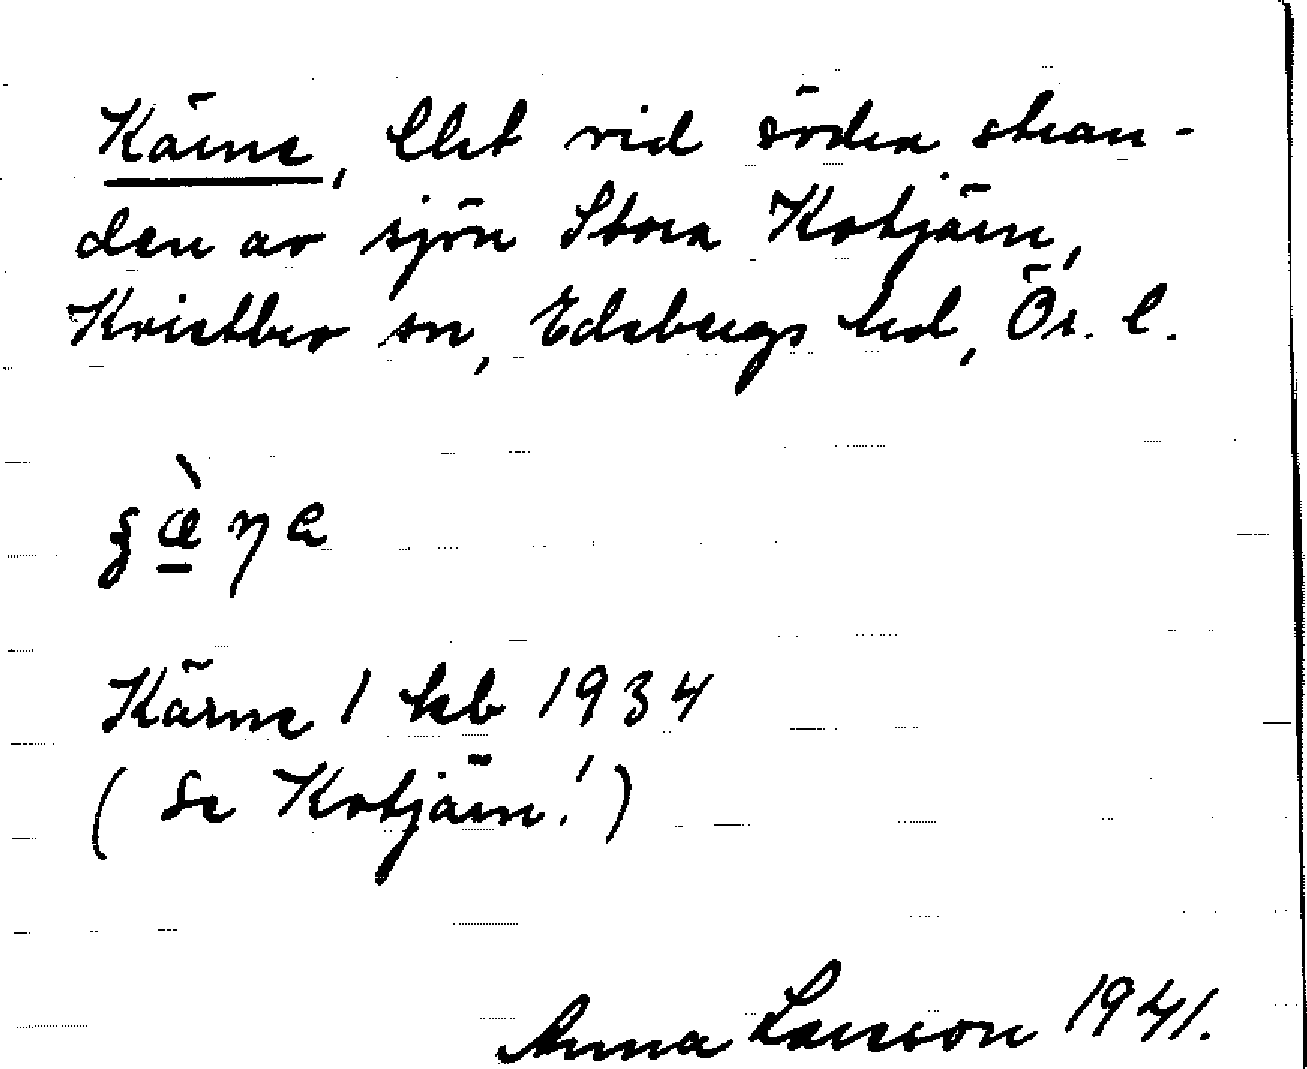 Kärne, Elet vid södra stran-
den av sjön Stora Kotjärn,
Kvistbro sn, Edsbergs hd, Ör. l.
Kärne 1 hb 1934
(Se Kotjärn!)
Anna Larsson 1941.